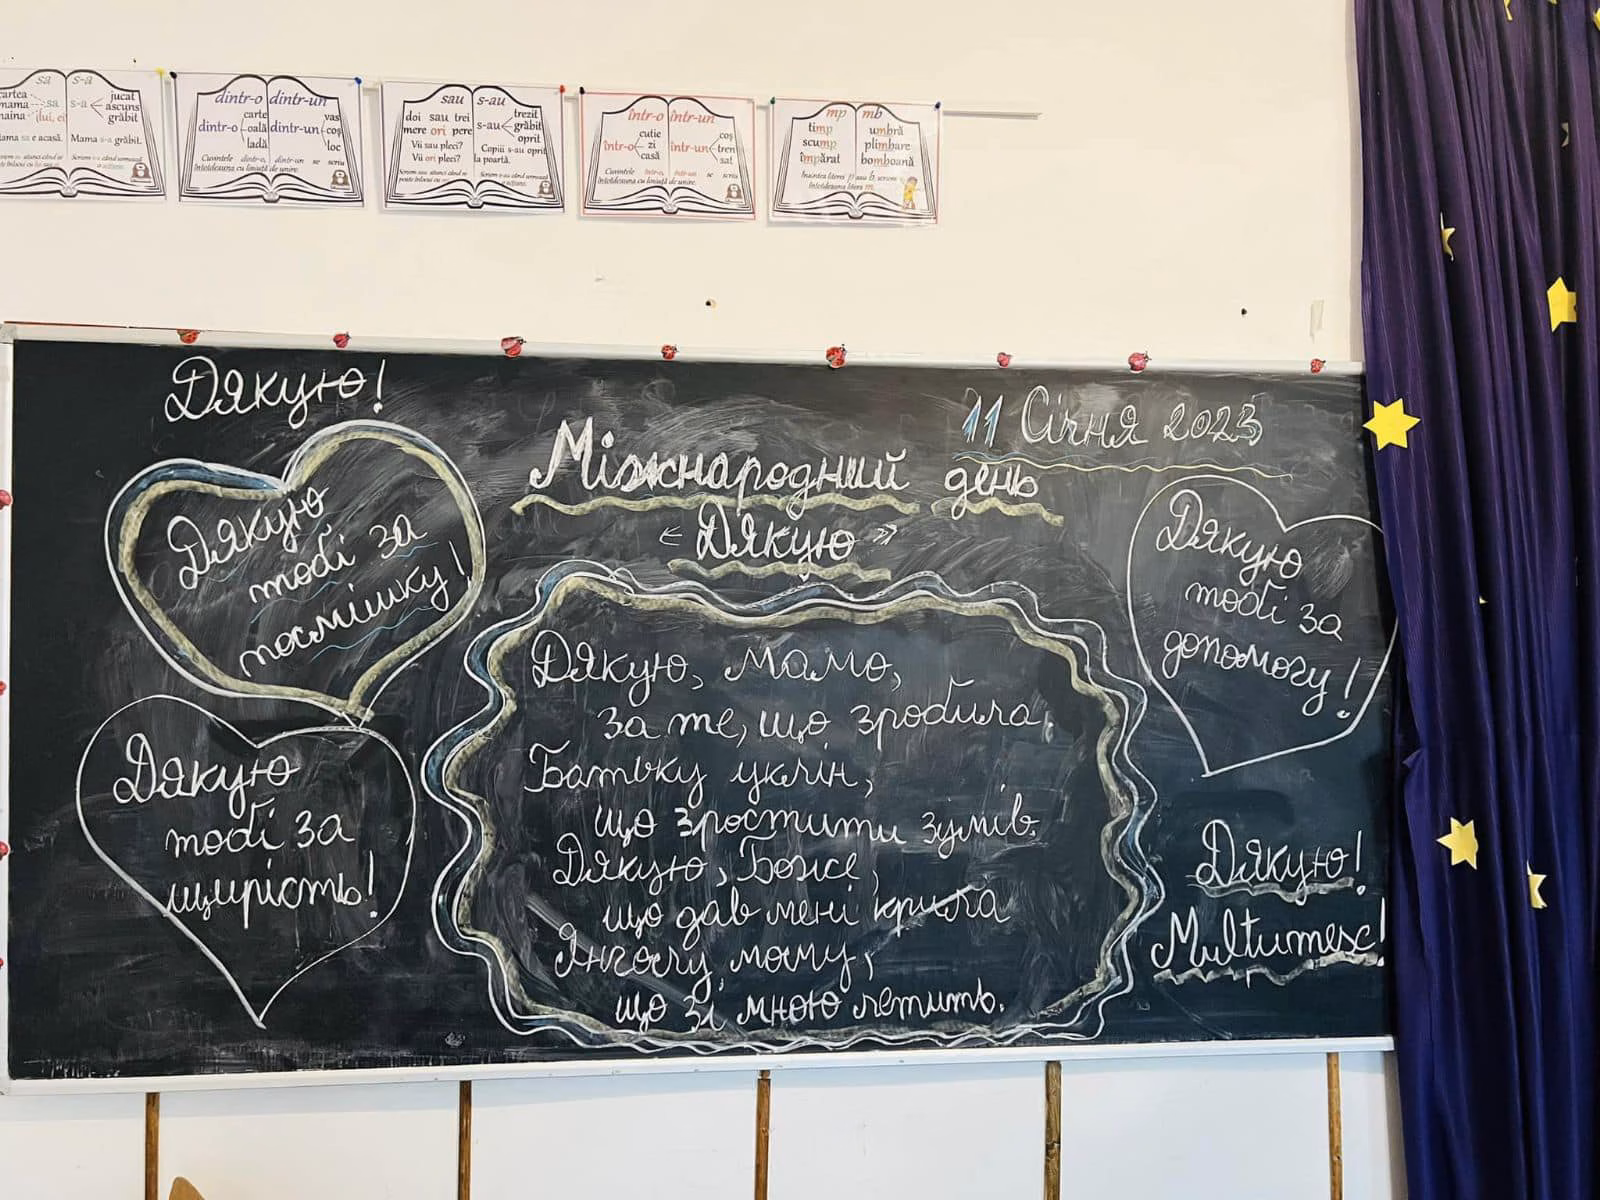 sa s-a
cartea
mama sa
haina îlui, ei
s-a jucat
ascuns
grăbit
Mama sa e acasă.
Mama s-a grăbit.
dintr-o dintr-un
dintr-o carte
oală
ladă
dintr-un vas
coș
loc
Cuvintele dintr-o, dintr-un se scriu
întotdeauna cu liniuță de unire.
sau s-au
doi sau trei
mere ori pere
Vii sau pleci?
Vii ori pleci?
s-au trezit
grăbit
oprit
Copiii s-au oprit
la poartă.
într-o într-un
într-o cutie
zi
casă
într-un coș
tren
sat
Cuvintele într-o, într-un se scriu
întotdeauna cu liniuță de unire.
mp mb
timp
scump
împărat
umbră
plimbare
bomboană
Înaintea literei p sau b, scriem
întotdeauna litera m.
Дякую!
11 Січня 2023
Міжнародний день
«Дякую»
Дякую
тобі за
посмішку!
Дякую
тобі за
щирість!
Дякую, мамо,
за те, що зробила,
Батьку уклін,
що зростити зумів.
Дякую, Боже,
що дав мені крила
Янголу мому,
що зі мною летить.
Дякую
тобі за
допомогу!
Дякую!
Multumesc!